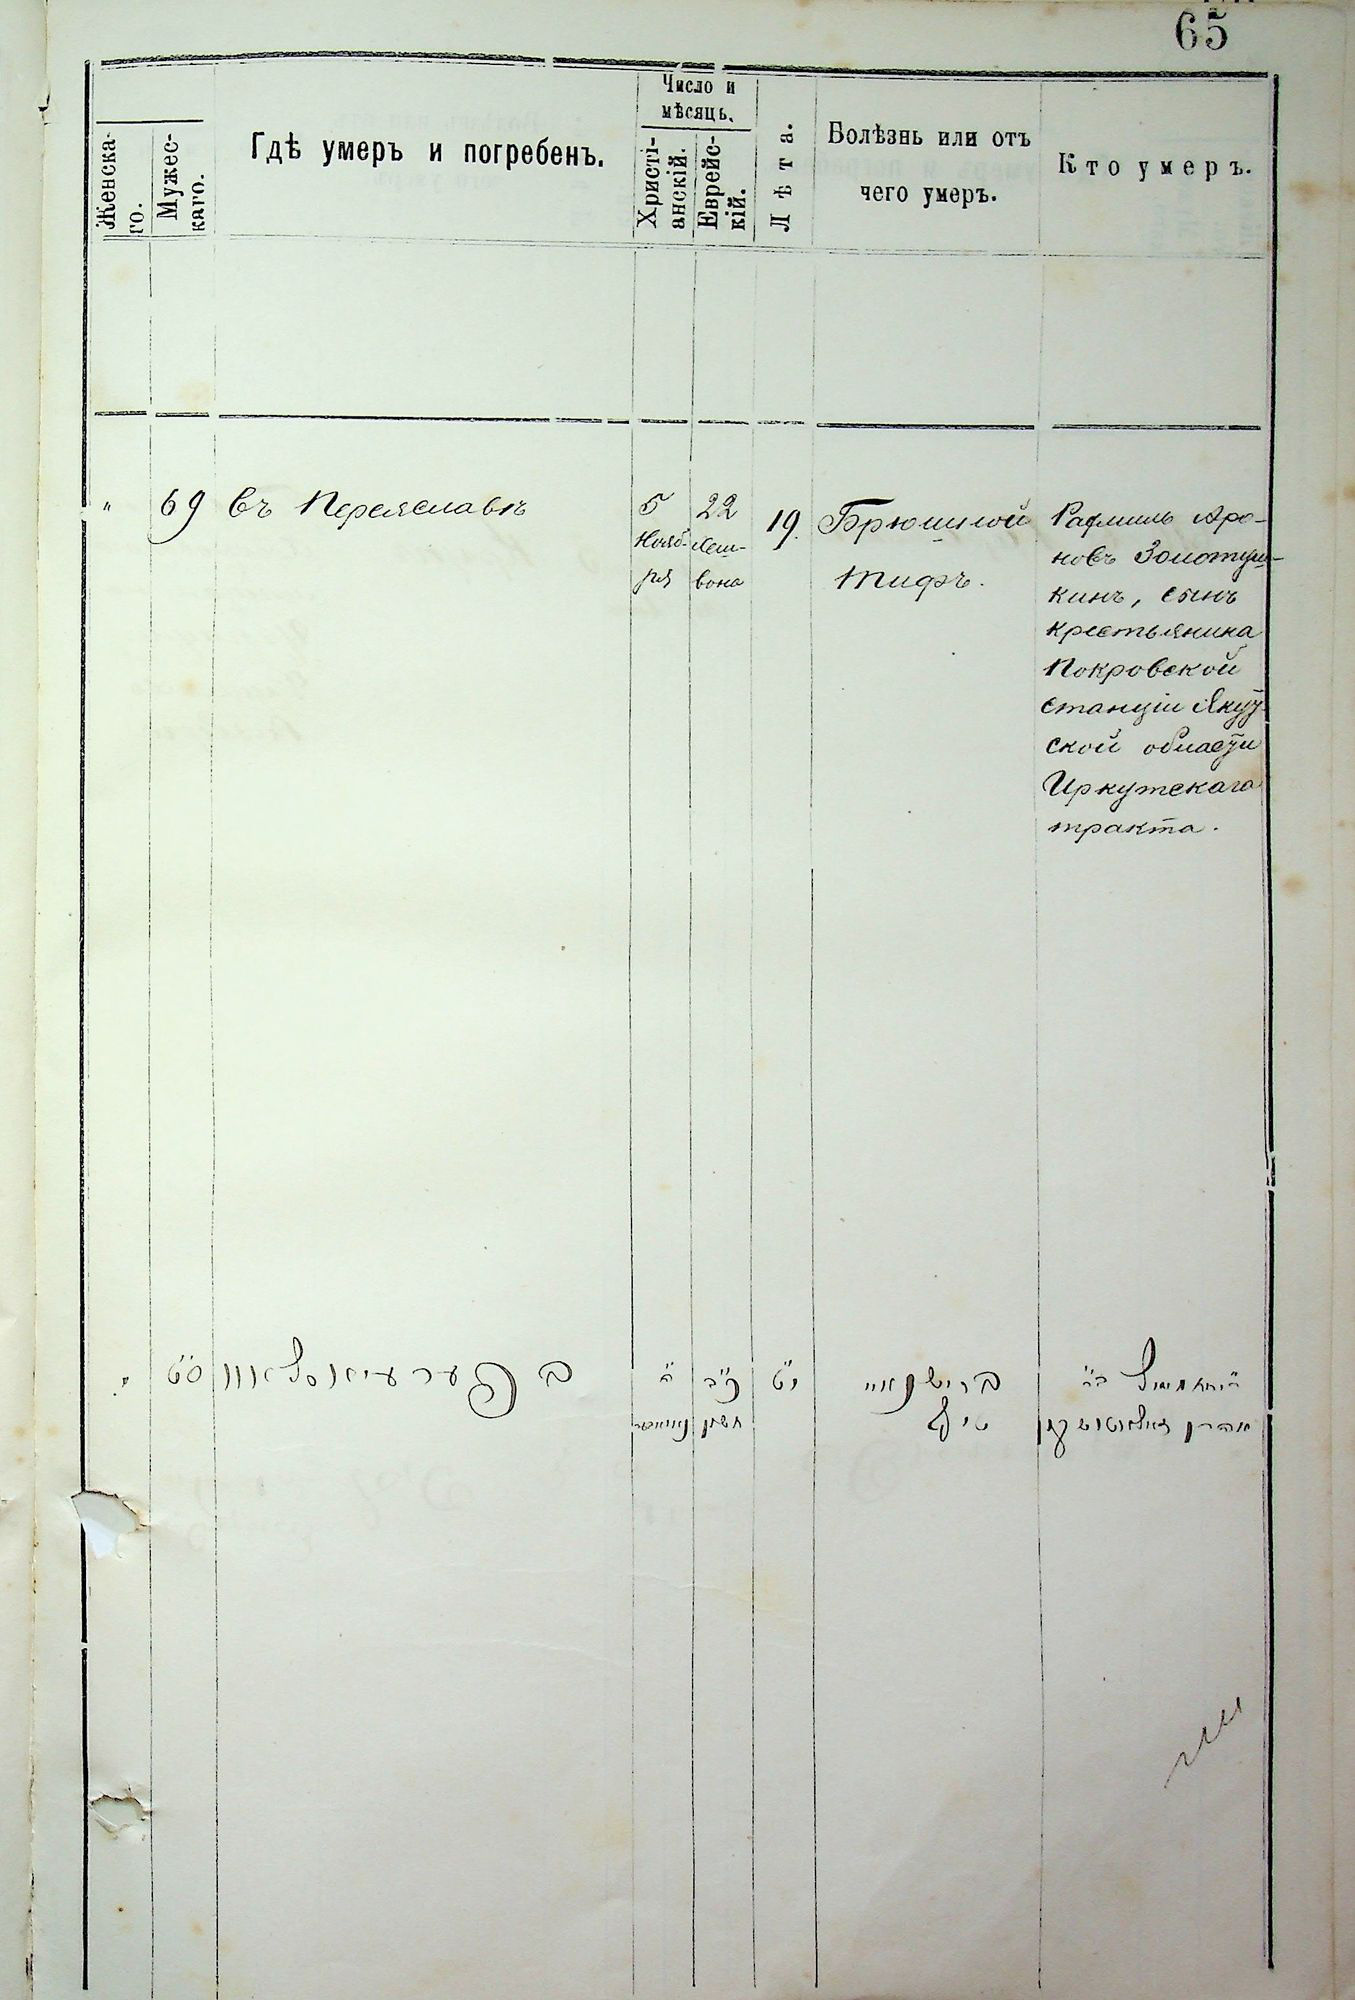 65
Женска-
го.
Мужес-
каго.
Гдѣ умеръ и погребенъ.
Число и
мѣсяцъ.
Христі-
анскій.
Еврейс-
кій.
Лѣта.
Болѣзнь или отъ
чего умеръ.
Кто умеръ.
"
69
въ Переяславѣ
5
Нояб-
ря
22
Хеш-
вона
19.
Брюшной
тифъ.
Рафаиль Аро-
новъ Золотуш-
кинъ, сынъ
крестьянина
Покровской
станціи Якут-
ской области
Иркутскаго
тракта.
ס״ט
ב פערעיאסלאוו
ה׳
כ״ב
חשון
י״ט
ברישנאיי
טיף
אהרן